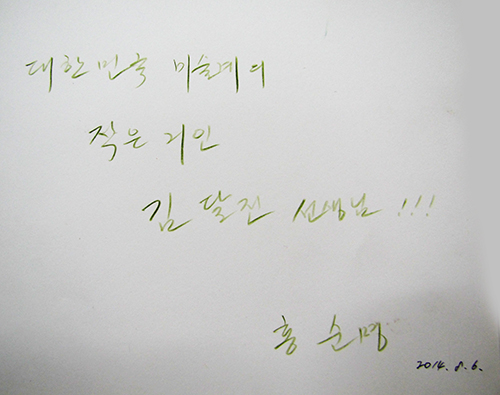 대한민국 미술계의
작은 거인
김달진 선생님!!!
홍순명
2014. 8. 6.